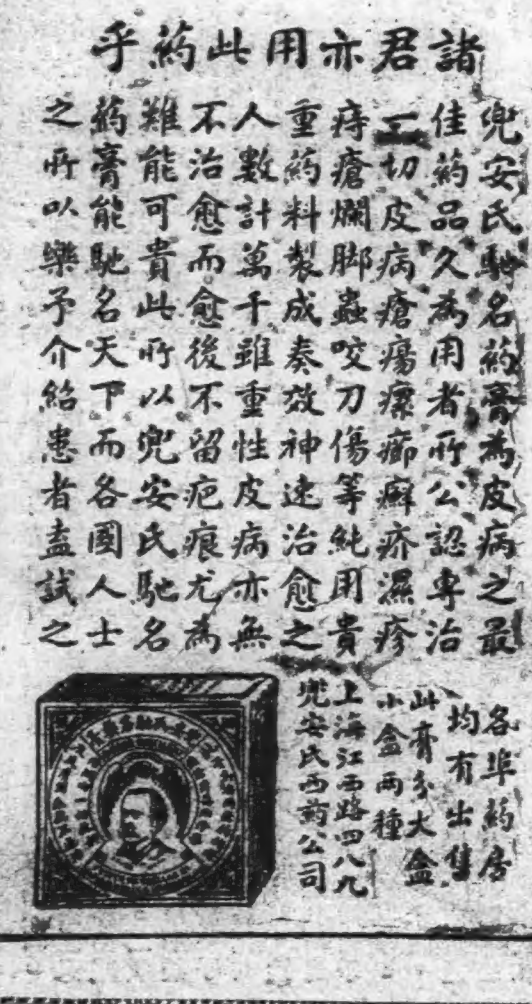 諸君亦用此葯乎
兜安氏馳名葯膏為皮病之最
佳葯品久為用者所公認專治
一切皮病瘡瘍瘰癤癬疥濕疹
痔瘡爛脚蟲咬刀傷等純用貴
重葯料製成奏效神速治愈之
人數計萬千雖重性皮病亦無
不治愈而愈後不留疤痕尤為
難能可貴此所以兜安氏馳名
葯膏能馳名天下而各國人士
之所以樂予介紹患者盍試之
各埠葯房
均有出售
此膏分大盒
小盒兩種
上海江西路四八九
兜安氏西葯公司